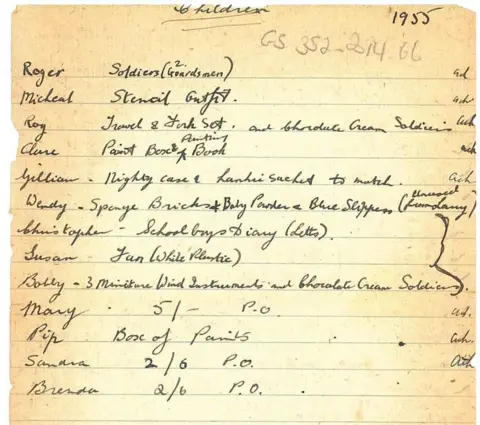 Children
1955
GS 352-2014 66
Roger Soldiers (2 Guardsmen) ack
Micheal Stencil Outfit. ack
Roy Trowel & Fork Set. and Chocolate Cream Soldiers ack
Clare Paint Box & Painting Book ack
Gillian - Nighty case & hankie sachet to match. ack
Wendy - Sponge Bricks & Baby Powder & Blue Slippers (
Christopher - Schoolboys Diary (Letts).
Susan Fan (White Plastic)
Bobby - 3 Miniture Wind Instruments and Chocolate Cream Soldiers).
Mary 5/- P.O. ack.
Pip Box of Paints ack.
Sandra 2/6 P.O. Ack
Brenda 2/6 P.O.